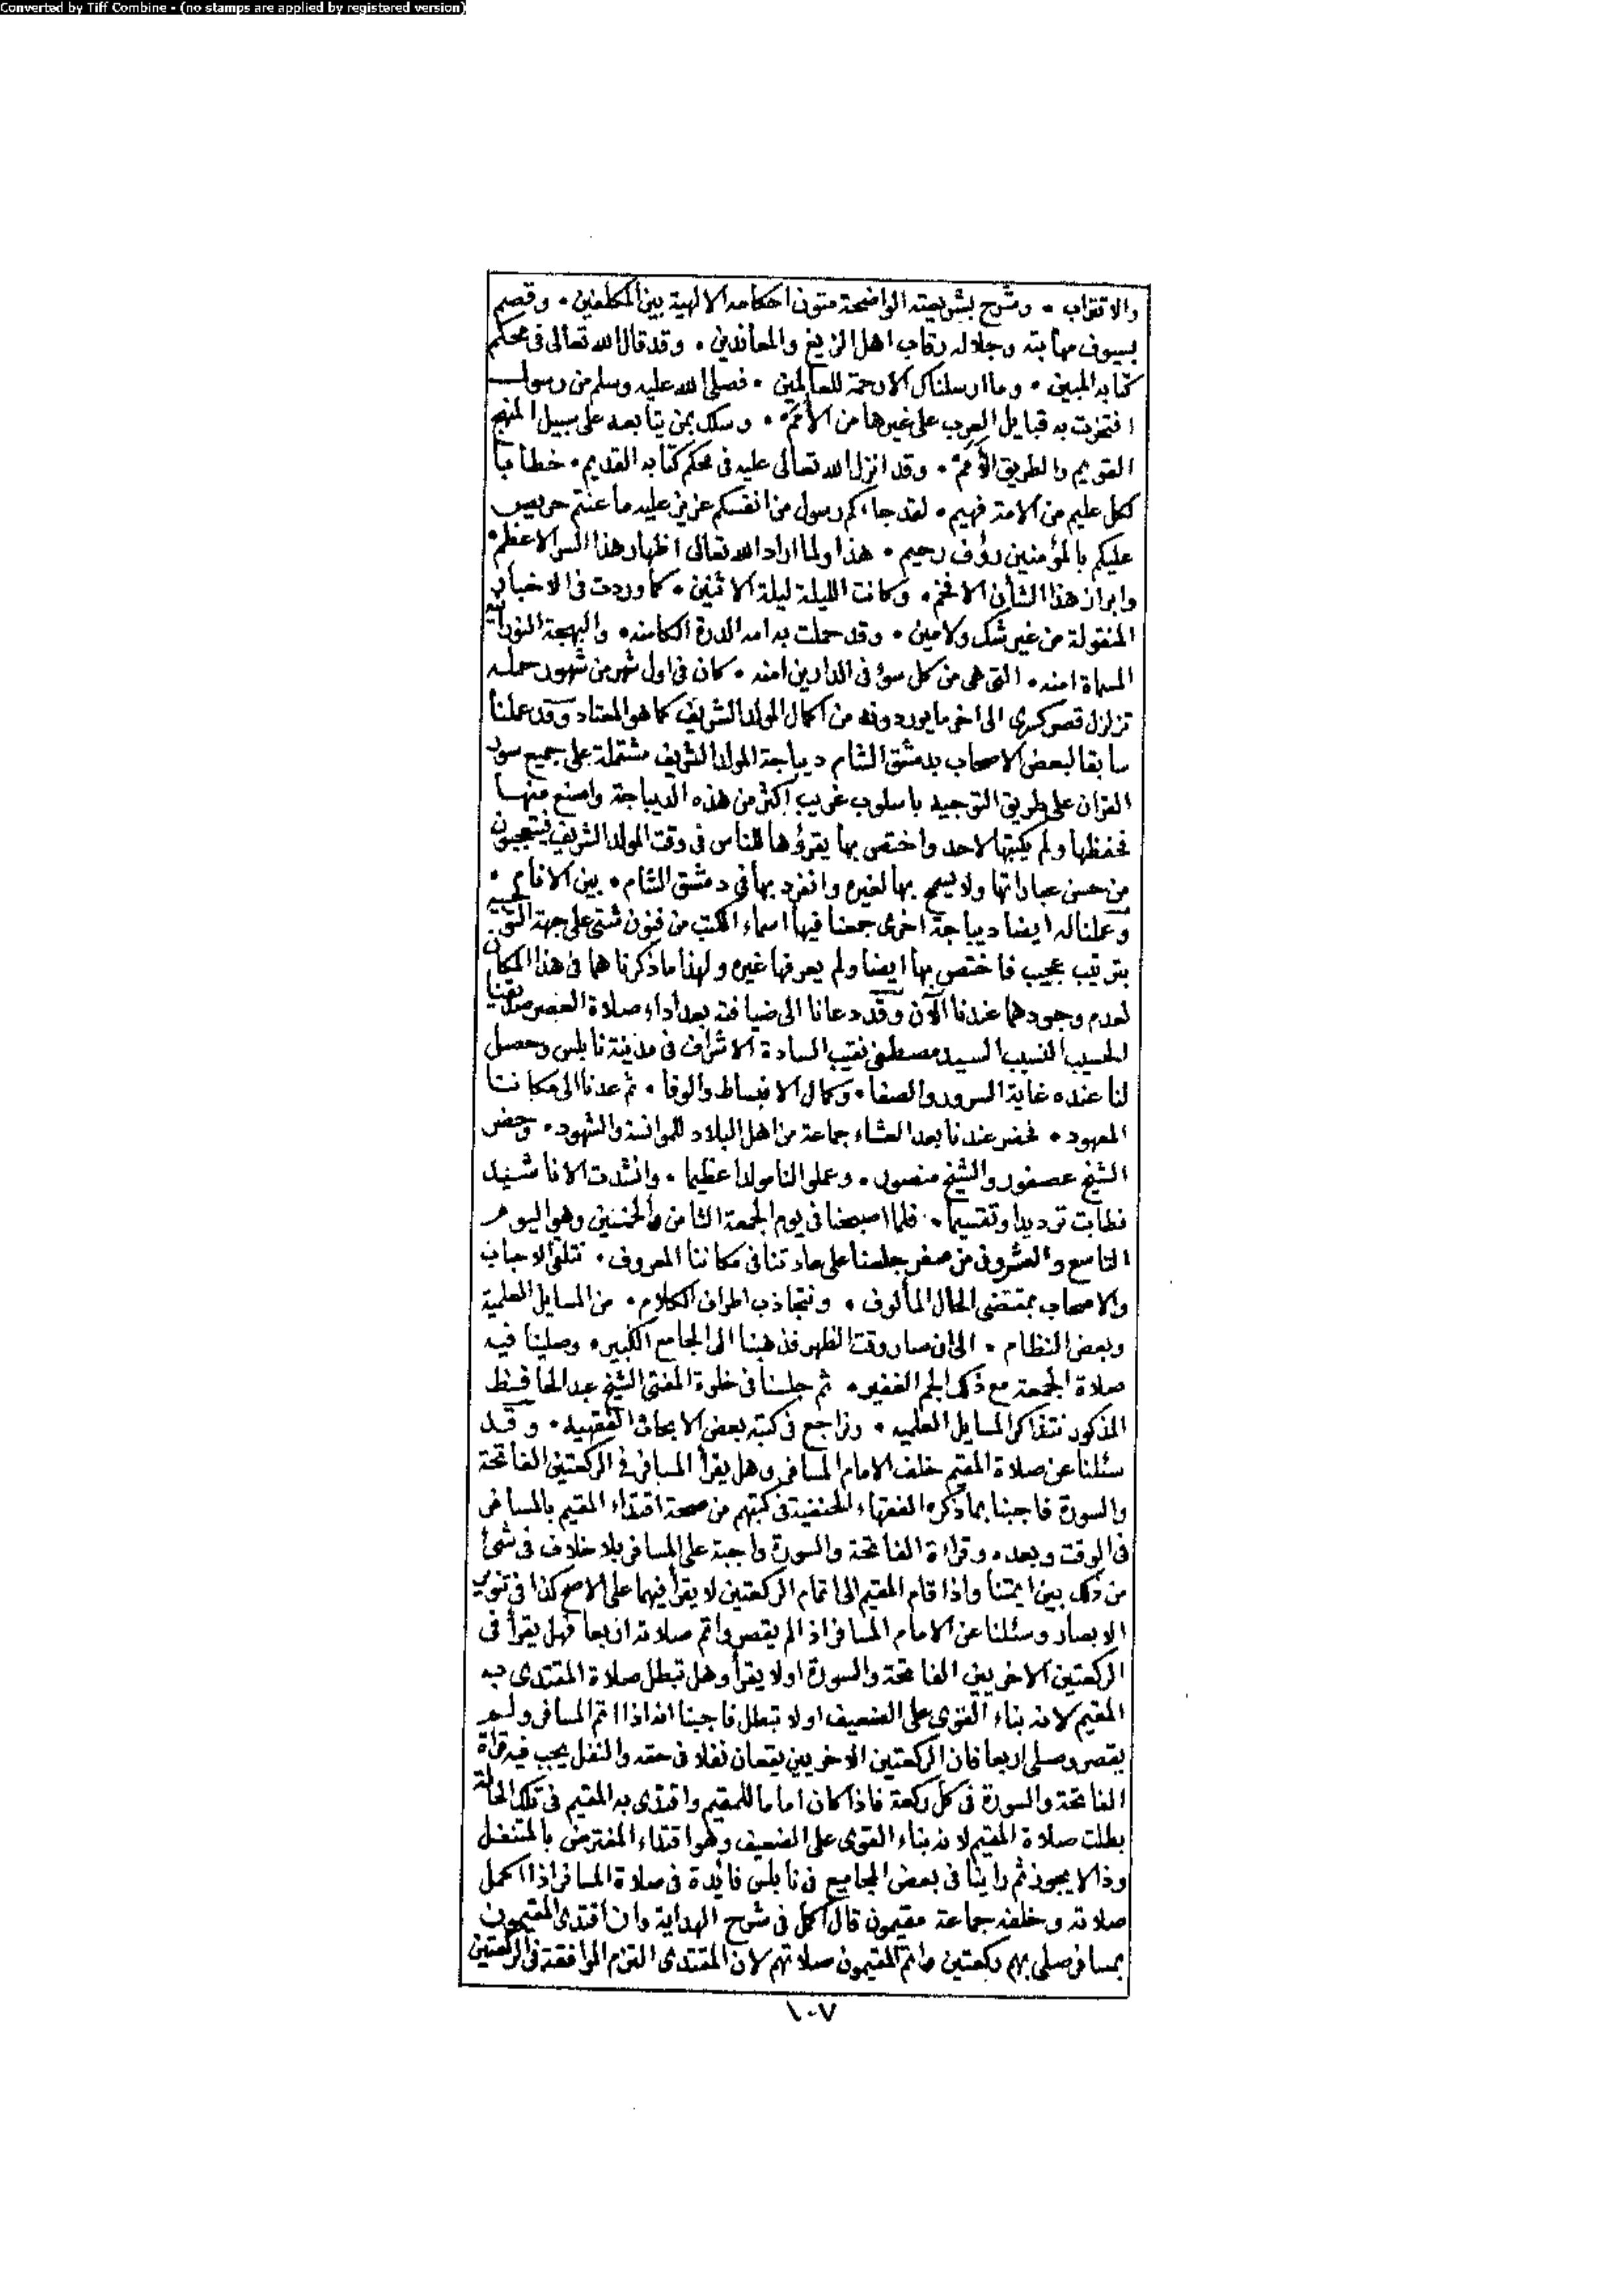 Converted by Tiff Combine - (no stamps are applied by registered version)
والاقتراب • وشرح بشريعته الواضحة متون احكامه الالهية بين المكلفين • وقصم
بسيوف مهابته وجلاله رقاب اهل الزيغ والمعاندين • وقد قال الله تعالى في محكم
كتابه المبين • وما ارسلناك الا رحمة للعالمين • فصلى الله عليه وسلم من رسول
افتخرت به قبايل العرب على غيرها من الأمم • وسلك بمن يتابعه على سبيل المنهج
القويم والطريق الأمم • وقد انزل الله تعالى عليه في محكم كتابه القديم • خطابا
لكل عليم من الامة فهيم • لقد جاءكم رسول من انفسكم عزيز عليه ما عنتم حريص
عليكم بالمؤمنين رؤف رحيم • هذا ولما اراد الله تعالى اظهار هذا السر الاعظم •
وابراز هذا الشأن الافخم • وكانت الليلة ليلة الاثنين • كما وردت في الاخبار
المنقولة من غير شك ولا مين • وقد حملت به امه الدرة الكامنه • والبهجة النورانية
المسماة امنه • التي هي من كل سؤ في الدارين امنه • كان في اول شهر من شهور حمله
تزلزل قصر كسرى الى اخر ما يوردونه من اكمال المولد الشريف كما هو المعتاد وقد عملنا
سابقا لبعض الاصحاب بدمشق الشام ديباجة المولد الشريف مشتملة على جميع سور
القرآن على طريق التوجيه باسلوب غريب اكثر من هذه الديباجة واصنع منها
فحفظها ولم يكتبها لاحد واختص بها يقرؤها للناس في وقت المولد الشريف فيتعجبون
من حسن عباراتها ولا يسمح بها لغيره وانفرد بها في دمشق الشام • بين الانام •
وعملنا له ايضا ديباجة اخرى جمعنا فيها اسماء الكتب من فنون شتى على جهة التوجيه
بترتيب عجيب فاختص بها ايضا ولم يعرفها غيره ولهذا ما ذكرناهما في هذا المكان
لعدم وجودهما عندنا الآن وقد دعانا الى ضيافته بعد اداء صلاة العصر صديقنا
الحسيب النسيب السيد مصطفى نقيب السادة الاشراف في مدينة نابلس وحصل
لنا عنده غاية السرور والصفا • وكمال الانبساط والوفا • ثم عدنا الى مكاننا
المعهود • فحضر عندنا بعد العشاء جماعة من اهل البلاد للموانسة والشهود • وحضر
الشيخ عصفور والشيخ منصور • وعملوا لنا مولدا عظيما • وانشدت الاناشيد
فطابت ترديدا وتقسيما • فلما اصبحنا في يوم الجمعة الثامن والخمسين وهو اليوم
التاسع والعشرون من صفر جلسنا على عادتنا في مكاننا المعروف • نتلقى الاحباب
والاصحاب بمقتضى الحال المألوف • ونتجاذب اطراف الكلام • من المسايل العلمية
وبعض النظام • الى ان صار وقت الظهر فذهبنا الى الجامع الكبير • وصلينا فيه
صلاة الجمعة مع ذلك الجم الغفير • ثم جلسنا في خلوة المفتي الشيخ عبد الحافظ
المذكور نتذاكر المسايل العلميه • ونراجع في كتبه بعض الابحاث الفقهيه • وقد
سئلنا عن صلاة المقيم خلف الامام المسافر وهل يقرأ المسافر في الركعتين الفاتحة
والسورة فاجبنا بما ذكره الفقهاء الحنفية في كتبهم من صحة اقتداء المقيم بالمسافر
في الوقت وبعده وقراءة الفاتحة والسورة واجبة على المسافر بلا خلاف في شئ
من ذلك بين ايمتنا واذا قام المقيم الى اتمام الركعتين لا يقرأ فيهما على الاصح كذا في تنوير
الابصار وسئلنا عن الامام المسافر اذا لم يقصر واتم صلاته اربعا فهل يقرأ في
الركعتين الاخريين الفاتحة والسورة اولا يقرأ وهل تبطل صلاة المقتدى به
المقيم لانه بناء القوى على الضعيف اولا تبطل فاجبنا انه اذا اتم المسافر ولم
يقصر وصلى اربعا فان الركعتين الاخريين يقعان نفلا في حقه والنفل يجب فيه قراة
الفاتحة والسورة في كل ركعة فاذا كان اماما للمقيم واقتدى به المقيم في تلك الحالة
بطلت صلاة المقيم لانه بناء القوى على الضعيف وهو اقتداء المفترض بالمتنفل
وذا لا يجوز ثم راينا في بعض المجاميع في نابلس فائدة في صلاة المسافر اذا اكمل
صلاته وخلفه جماعة مقيمون قال اكمل في شرح الهداية وان اقتدى المقيمون
بمسافر صلى بهم ركعتين واتم المقيمون صلاتهم لان المقتدى التزم الموافقة في الركعتين
١٠٧